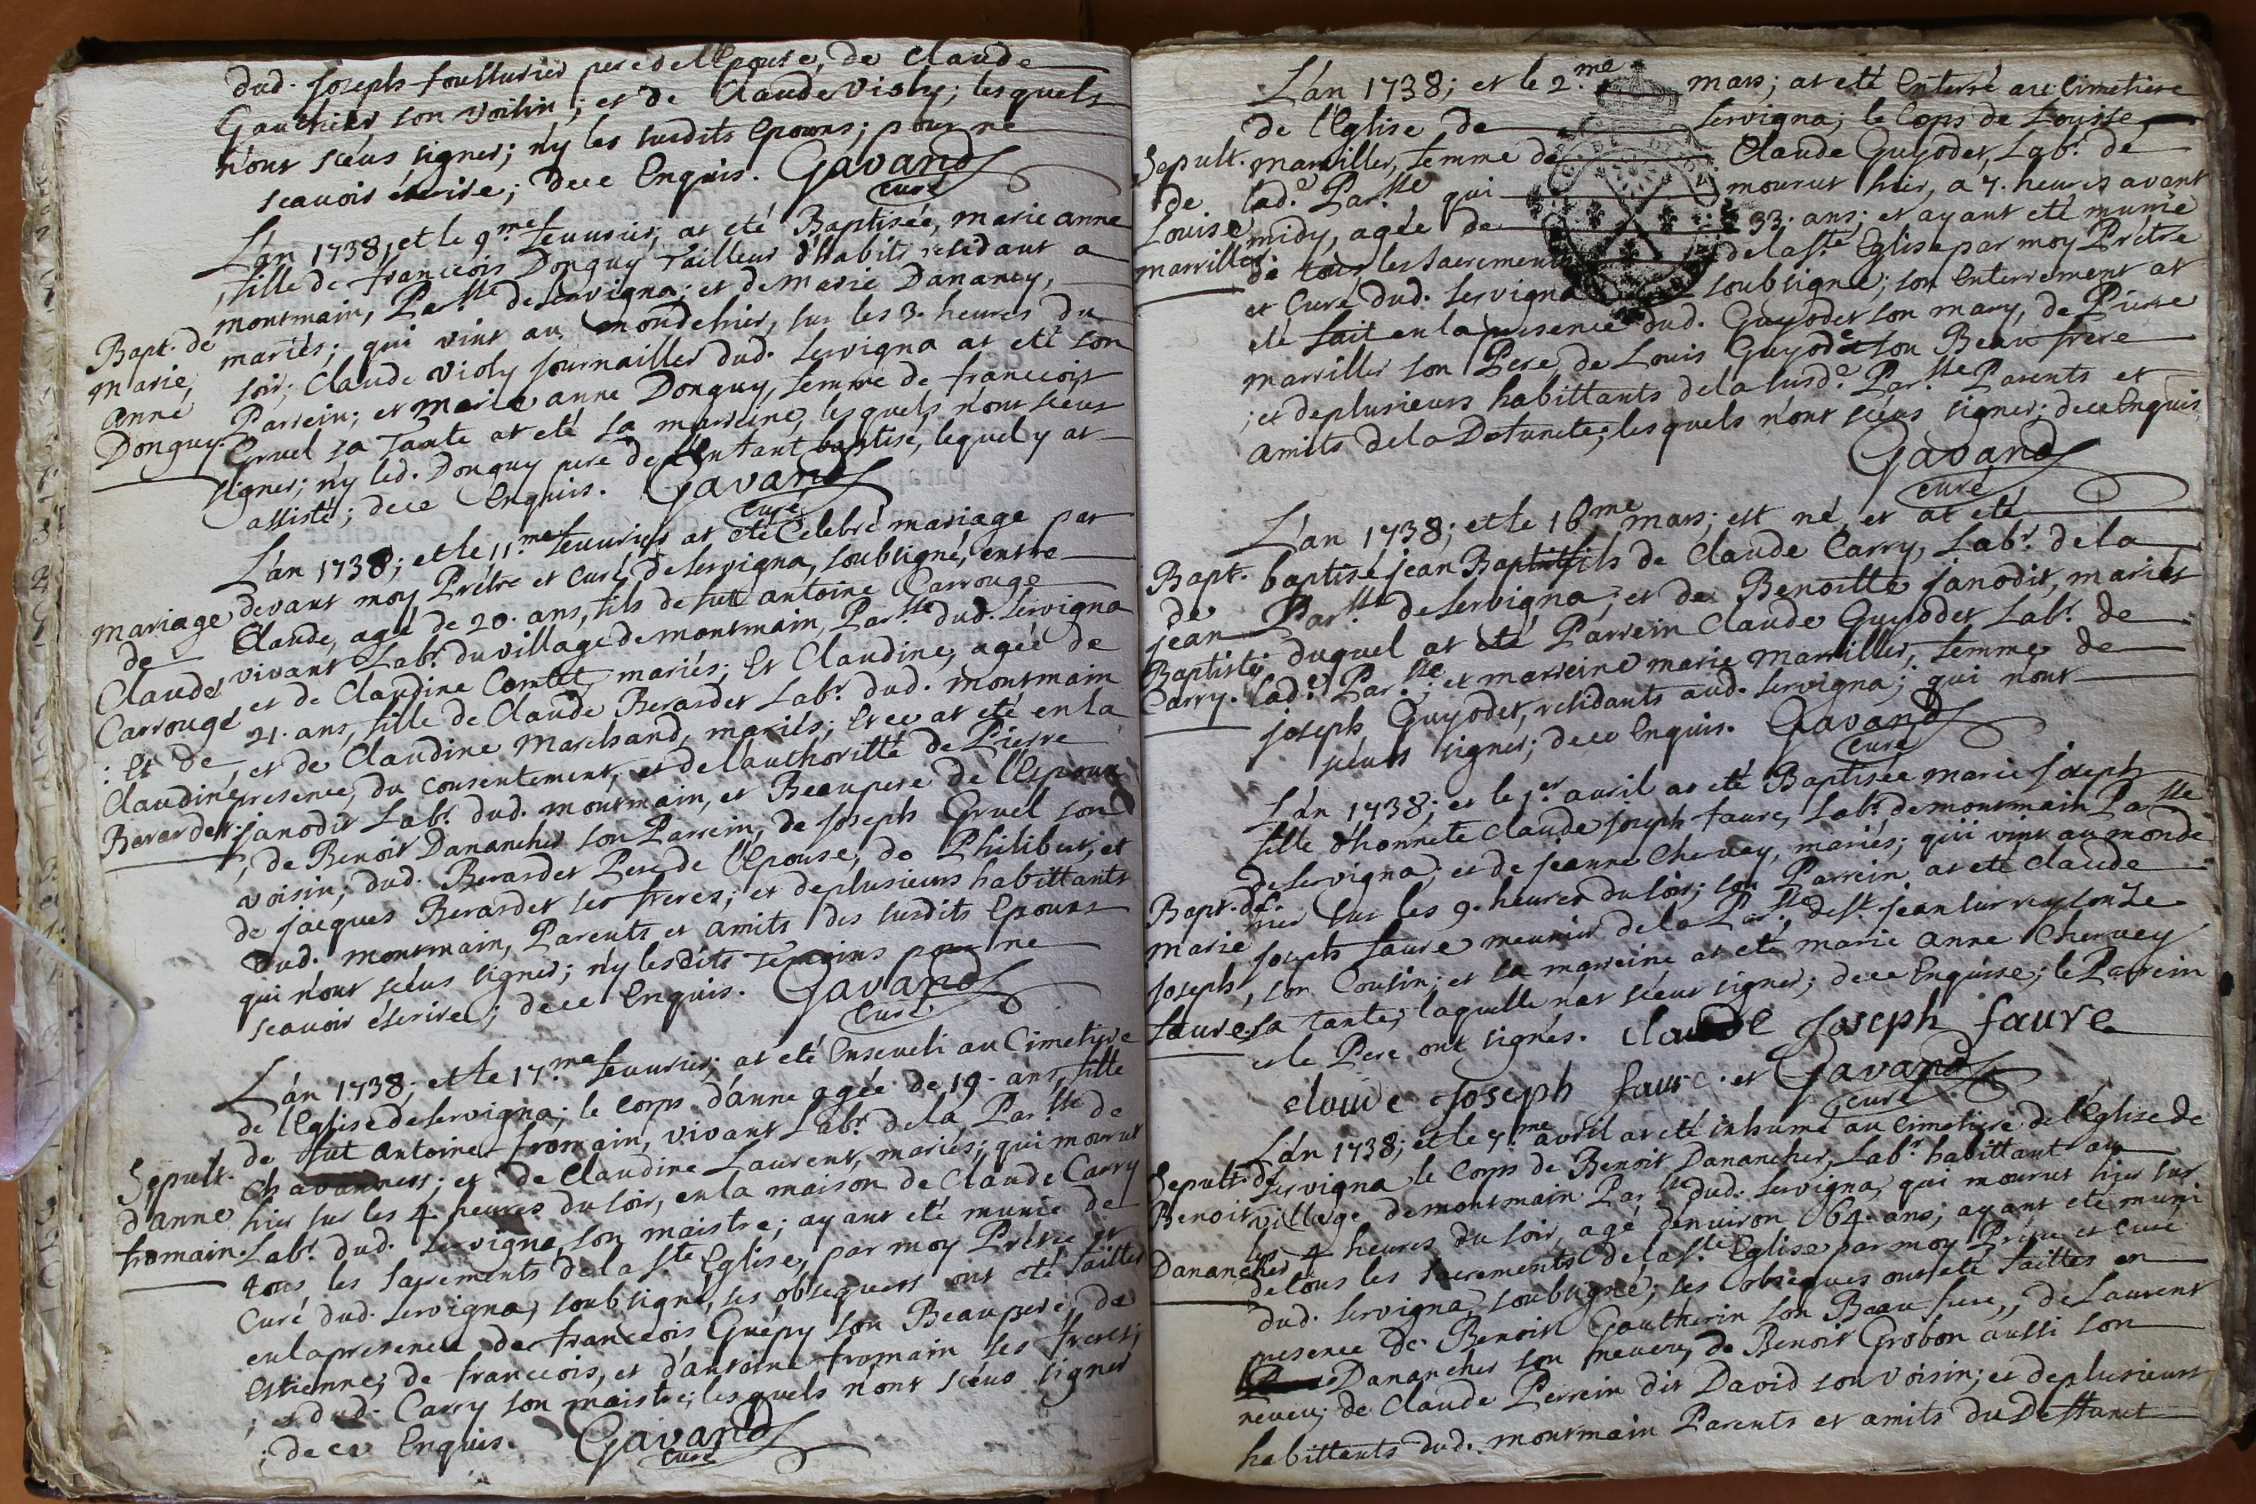 dud. Joseph foullurier pere de l'Epouse, de Claude
Gauthier son voisin; et de Claude Violy; lesquels
n'ont sceus signer; n'y les susdits Epoux; pour ne
scavoir écrire; dece Enquis. Gavand
curé
L'an 1738; et le 9.me feuurier; at eté Baptisée, marie anne
fille de francois Donguy Tailleur d'habits residant a
montmain, Par.sse de Servigna; et de Marie Danancy,
mariés; qui vint au monde hier, sur les 3. heures du
soir; Claude Violy journaillier dud. Servigna at eté son
Parrein; et marie anne Donguy, femme de francois
Gruel sa Tante at eté sa marreine, lesquels n'ont sceus
signer; n'y led. Donguy pere de l'enfant baptisé, lequel y at
assisté; dece Enquis. Gavand
curé
Bapt. de
marie,
anne
Donguy.
L'an 1738; et le 11.me feuurier at eté Celebré mariage par
devant moy Prétre et curé, de Servigna, soubsigné, entre
Claude, agé de 20. ans, fils de fut antoine Carrouge
vivant Lab.r du village de montmain, Par.sse dud. Servigna
et de Claudine Comtet, mariés; Et Claudine, agée de
21. ans, fille de Claude Berardet Lab.r dud. montmain
, et de Claudine Marchand, mariés; Et ce at eté en la
presence, du consentement, et de l'authoritté de Pierre
janodit Lab.r dud. montmain, et Beaupere de l'Epoux
, de Benoit Danancher son Parrein, de Joseph Gruel son
voisin; dud. Berardet Pere de l'Epouse, de Philibert, et
de jacques Berardet ses freres; et de plusieurs habittants
dud. montmain, Parents et amits des susdits Epoux
qui n'ont sceus signer; n'y lesdits Temoins pour ne
scavoir éscrire; dece Enquis. Gavand
Curé
mariage
de
Claude
Carrouge
: Et de
Claudine
Berardet.
L'an 1738; et le 17.me feuurier; at eté Enseveli au Cimetyre
de l'Eglise de Servigna; le corps d'anne agée de 19. ans, fille
de fut antoine fromain, vivant Lab.r de la Par.sse de
; et de Claudine Laurent, mariés; qui mourut
hier sur les 4. heures du soir, en la maison de Claude Carry
Lab.r dud. Servigna, son maistre; ayant eté munie de
tous les sacrements de la S.te Eglise, par moy Prétre et
Curé dud. Servigna, soubsigné, ses obseques ont eté faittes
en la presence de francois Guépy son Beaupere, de
Estienne; de francois, et d'antoine fromain ses freres;
; et dud. Carry son maistre; lesquels n'ont sceus signer
; dece Enquis. Gavand
Curé
Sepult.
d'anne
fromain.
L'an 1738; et le 2.me mars; at eté Enterré au Cimetiere
de l'Eglise de Servigna; le Corps de Louise
marviller, femme de Claude Guyodet, Lab.r de
lad.e Par.sse qui mourut hier, a 7. heures avant
midy, agée de 33. ans; et ayant eté munie
de tous les sacrements de la S.te Eglise par moy Prétre
et Curé dud. Servigna soubsigné; son Enterrement at
eté fait en la presence dud. Guyodet son mary, de Pierre
marviller son Pere, de Louis Guyodet son Beau frere
; et de plusieurs habittants de la susd.e Par.sse Parents et
amits de la Defuncte; lesquels n'ont sceus signer; dece Enquis
Gavand
curé
Sepult.
de
Louise
marviller
L'an 1738; et le 16.me mars; est né, et at eté
baptisé jean Baptiste fils de Claude Carry, Lab.r de la
Par.sse de Servigna; et de Benoitte janodit, mariés
duquel at eté Parrein Claude Guyodet Lab.r de
lad.e Par.sse; et marreine marie Marviller, femme de
joseph Guyodet, residants aud. Servigna; qui n'ont
sceus signer; dece Enquis. Gavand
Curé
Bapt.
de
jean
Baptiste
Carry.
L'an 1738; et le 1.er avril at eté Baptisée marie joseph
fille d'honnete Claude joseph faure, Lab.r de montmain Par.sse
de Servigna; et de jeanne Chervey, mariés; qui vint au monde
hier sur les 9. heures du soir; son Parrein at eté Claude
joseph faure meunier de la Par.sse de S.t jean
, son Cousin; et sa marreine at eté marie anne Chervey
sa tante; laquelle n'at sceut signer; dece Enquise; le Parrein
et le Pere ont signés. claude Joseph faure
claude Joseph faure et Gavand
curé
Bapt. de
marie
joseph
faure
L'an 1738; et le 7.me avril at eté inhumé au Cimetiere de l'Eglise de
Servigna le Corps de Benoit Danancher, Lab.r habittant au
village de montmain Par.sse dud. Servigna, qui mourut hier sur
les 4 heures du soir, agé d'environ 64. ans; ayant eté muni
de tous les sacrements de la S.te Eglise par moy Prétre et Curé
dud. Servigna, soubsigné; ses obseques ont eté faittes en
presence de Benoist Gautherin son Beau frere, de Laurent
Danancher son neveu, de Benoit Grobon aussi son
neveu; de Claude Perrein dit David son voisin; et de plusieurs
habittants dud. montmain Parents et amits du Deffunct
Sepult. de
Benoit
Danancher